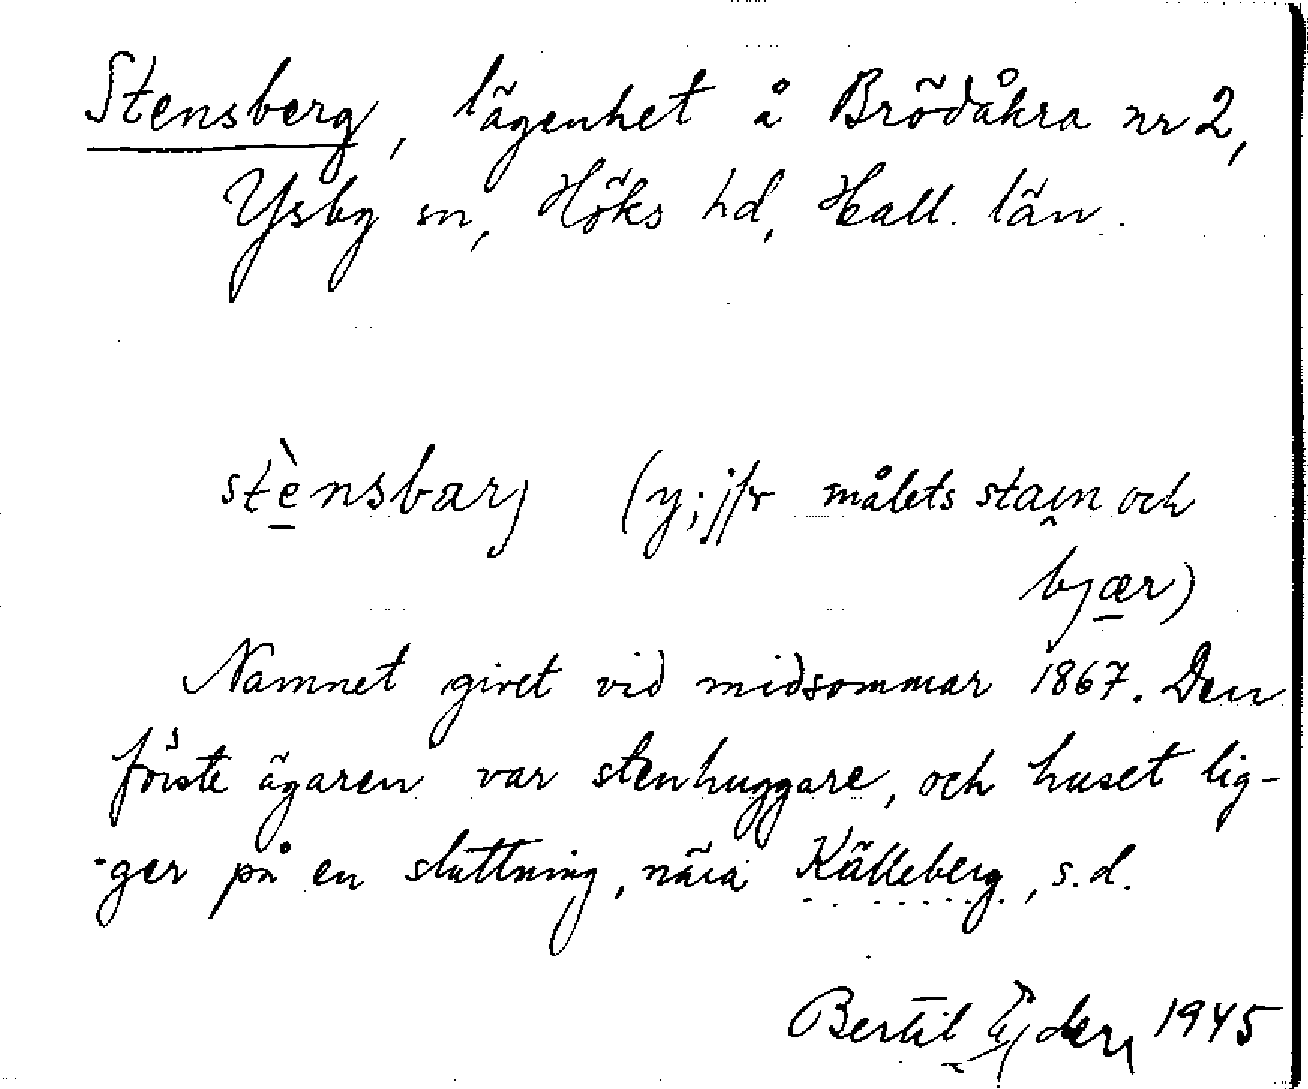 Stensberg, lägenhet å Brödåkra nr 2,
Ysby sn, Höks hd, Hall. län.
stènsbarj (y; jfr målets stain och
bjær)
Namnet givet vid midsommar 1867. Den
förste ägaren var stenhuggare, och huset lig-
-ger på en sluttning, nära Källeberg, s.d.
Bertil 1945